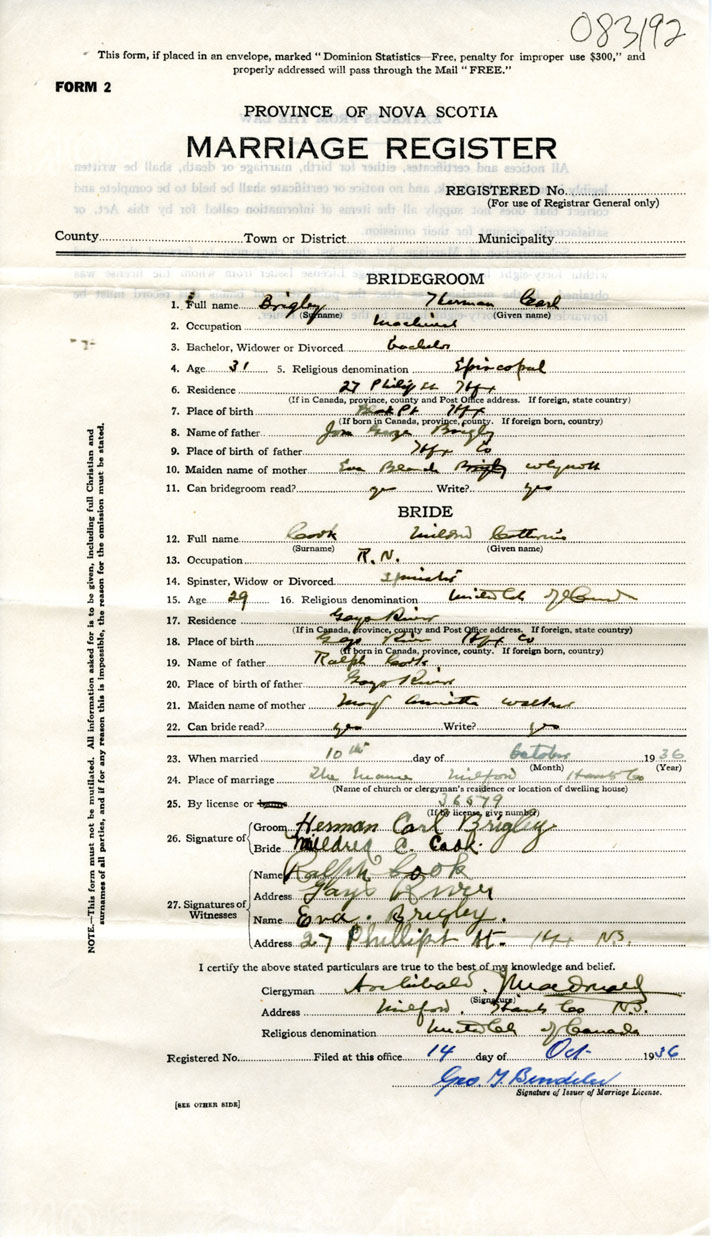 083192
This form, if placed in an envelope, marked "Dominion Statistics—Free, penalty for improper use $300," and
properly addressed will pass through the Mail "FREE."
FORM 2
PROVINCE OF NOVA SCOTIA
MARRIAGE REGISTER
REGISTERED No.
(For use of Registrar General only)
County Town or District Municipality
BRIDEGROOM
1. Full name Brigley Herman Carl
(Surname) (Given name)
2. Occupation Machinist
3. Bachelor, Widower or Divorced bachelor
4. Age 31 5. Religious denomination Episcopal
6. Residence 27 Philip St Hfx
(If in Canada, province, county and Post Office address. If foreign, state country)
7. Place of birth Pt Hfx
(If born in Canada, province, county. If foreign born, country)
8. Name of father George Brigley
9. Place of birth of father Hfx Co
10. Maiden name of mother Eva Blanch Brigley
11. Can bridegroom read? yes Write? yes
BRIDE
12. Full name Cook Mildred Catherine
(Surname) (Given name)
13. Occupation R.N.
14. Spinster, Widow or Divorced Spinster
15. Age 29 16. Religious denomination United Ch of Canada
17. Residence Gays River
(If in Canada, province, county and Post Office address. If foreign, state country)
18. Place of birth Gays River Hfx Co
(If born in Canada, province, county. If foreign born, country)
19. Name of father Ralph Cook
20. Place of birth of father Gays River
21. Maiden name of mother Mary Annetta
22. Can bride read? yes Write? yes
23. When married 10th day of October 1936
(Month) (Year)
24. Place of marriage The Manse Milford Hants Co
(Name of church or clergyman's residence or location of dwelling house)
25. By license or banns 36579
(If by license, give number)
26. Signature of Groom Herman Carl Brigley
Bride Mildred C. Cook.
27. Signatures of Witnesses Name Ralph Cook
Address Gays River
Name Eva. Brigley.
Address 27 Phillips St. Hfx N.S.
I certify the above stated particulars are true to the best of my knowledge and belief.
Clergyman Archibald MacDonald
(Signature)
Address Milford, Hants Co N.S.
Religious denomination United Ch of Canada
Registered No. Filed at this office 14 day of Oct- 1936
Geo. T. Bendeler
Signature of Issuer of Marriage License.
[SEE OTHER SIDE]
NOTE.—This form must not be mutilated. All information asked for is to be given, including full Christian and
surnames of all parties, and if for any reason this is impossible, the reason for the omission must be stated.